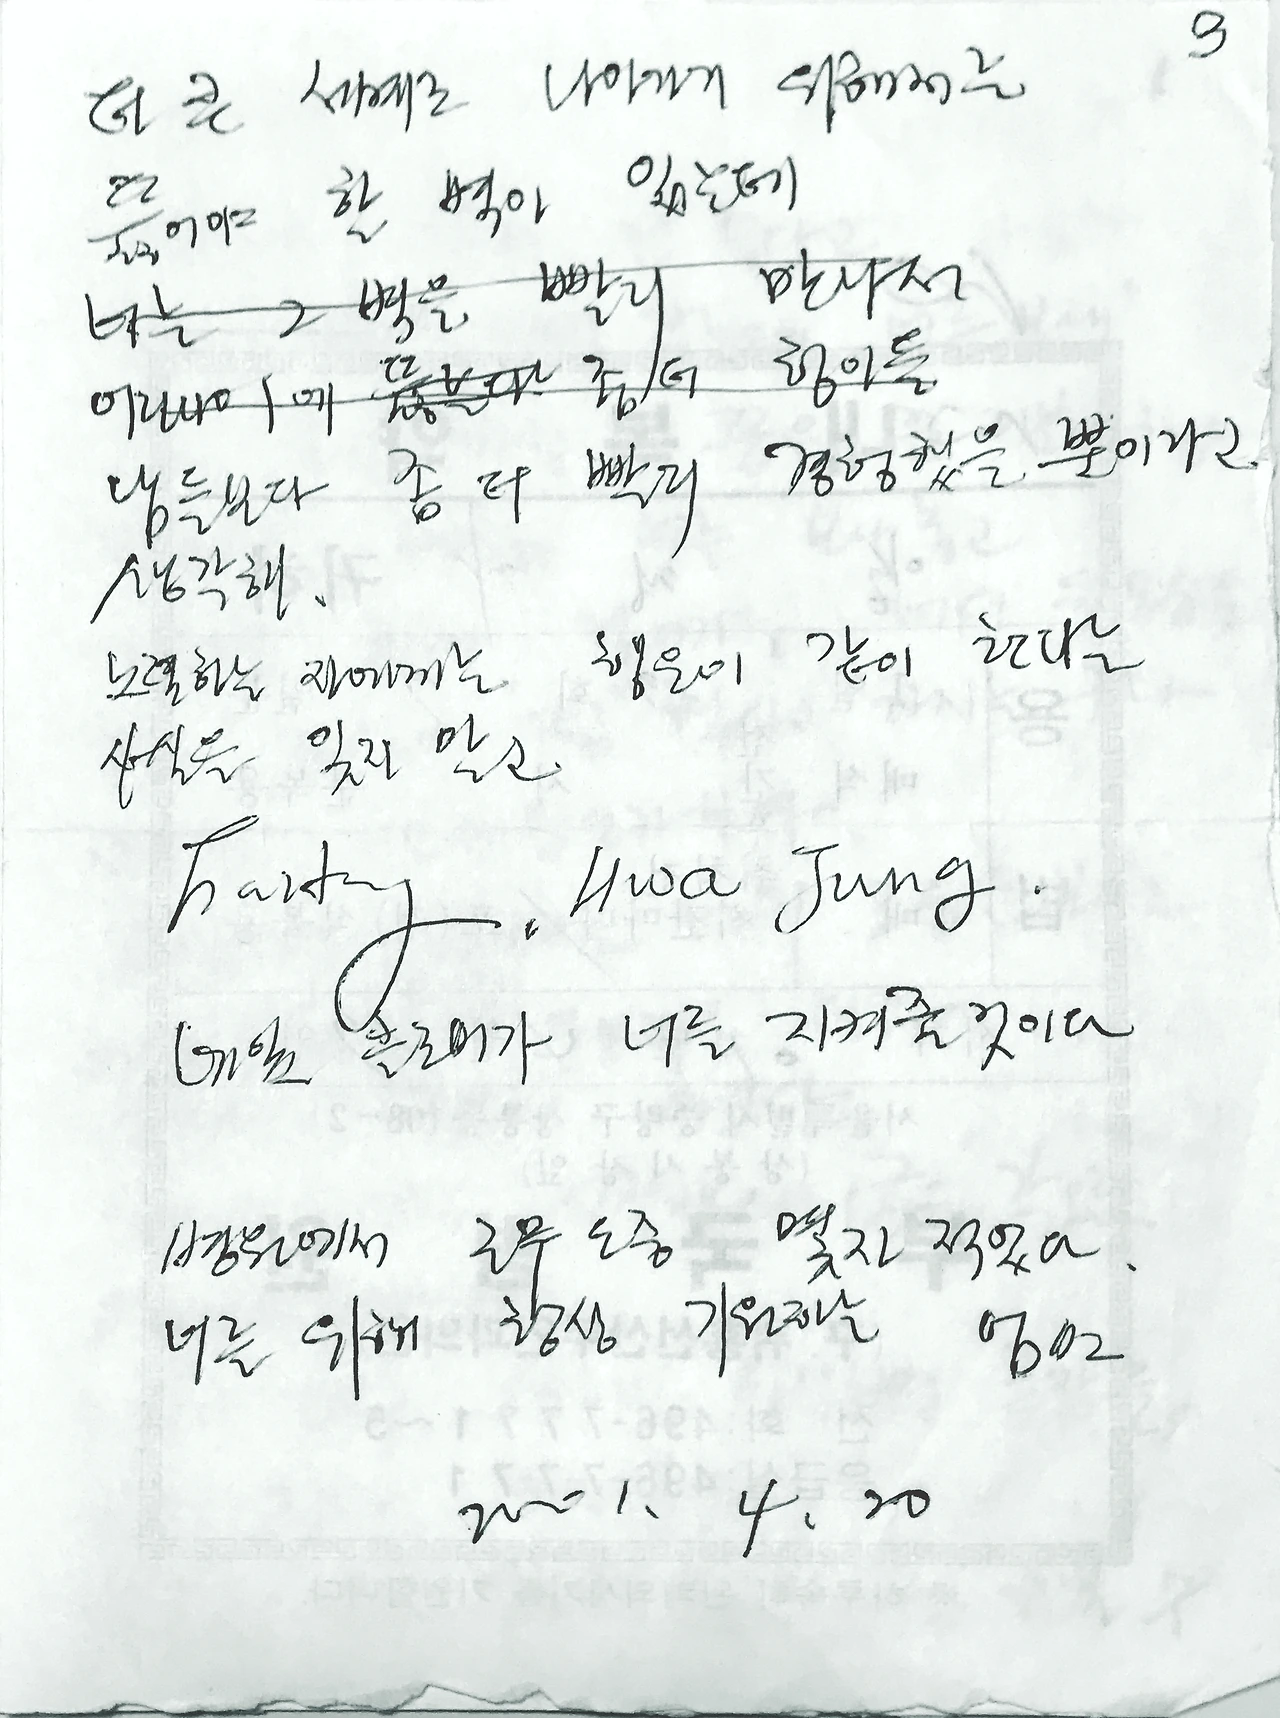 3
더 큰 세계로 나아가기 위해서는
뚫어야 할 벽이 있는데
너는 그 벽을 빨리 만나서
어린나이에 좀 더 힘이들
남들보다 좀 더 빨리 경험했을 뿐이라고
생각해.
노력하는 자에게는 행운이 같이 한다는
사실을 잊지 말고
Hwa Jung.
너를 지켜줄 것이다
병원에서 근무 도중 몇자 적었다.
너를 위해 항상 기원하는 엄마
2001. 4. 20